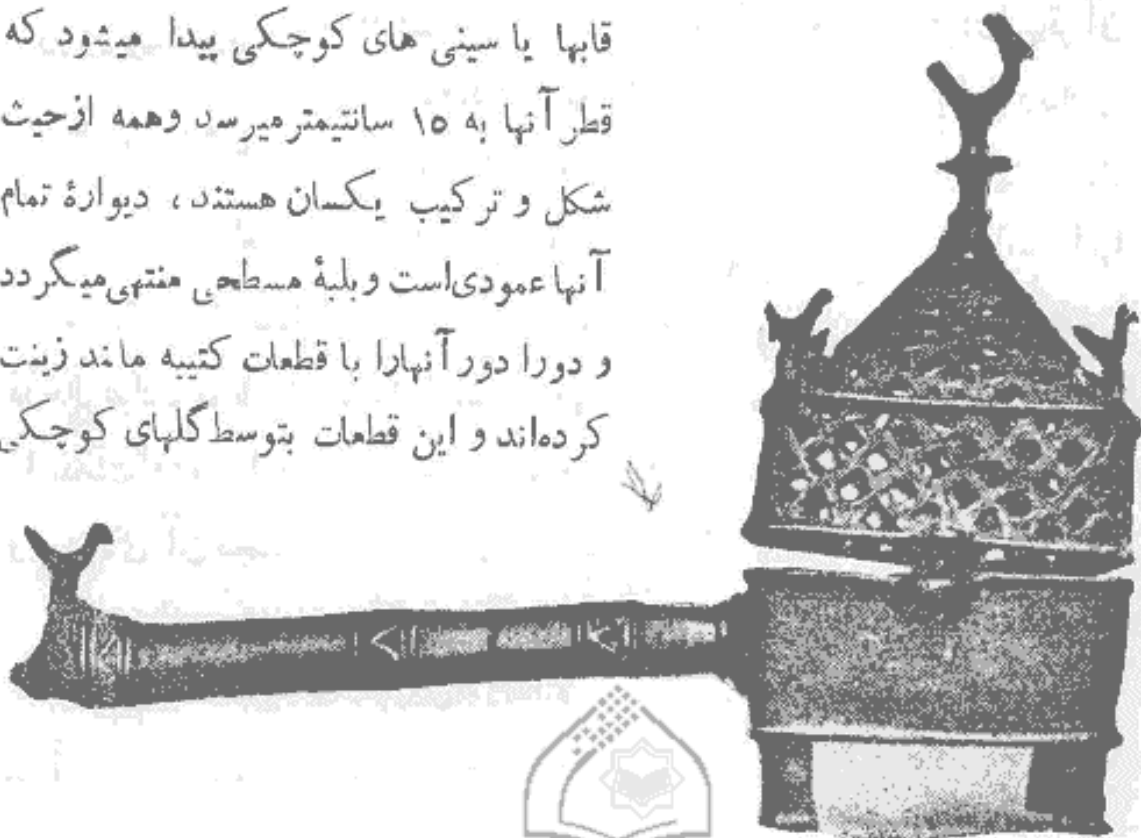 قابها یا سینی های کوچکی پیدا میشود که
قطر آنها به ۱۵ سانتیمتر میرسد وهمه ازحیث
شکل و ترکیب یکسان هستند ، دیوارهٔ تمام
آنها عمودی‌است وبلبهٔ مسطحی منتهی‌میگردد
و دورا دور آنهارا با قطعات کتیبه مانند زینت
کرده‌اند و این قطعات بتوسط گلهای کوچکی